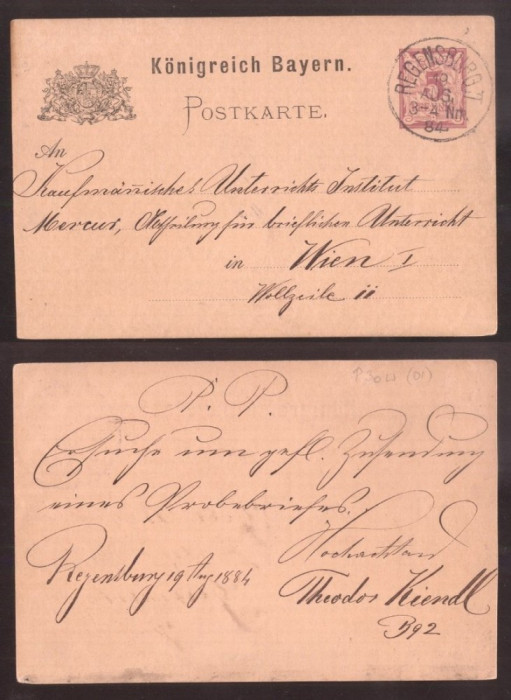 Königreich Bayern.
POSTKARTE.
REGENSBURG I
AUG.
3-4 Nm.
84
5
An
Kaufmännisches Unterrichts Institut
Mercur, Abtheilung für brieflichen Unterricht
in Wien I
Wollzeile 11
P. P.
Ersuche um gefl. Zusendung
eines Probebriefes.
Hochachtend
Regensburg 19 Aug 1884
Theodor Kiendl
B92